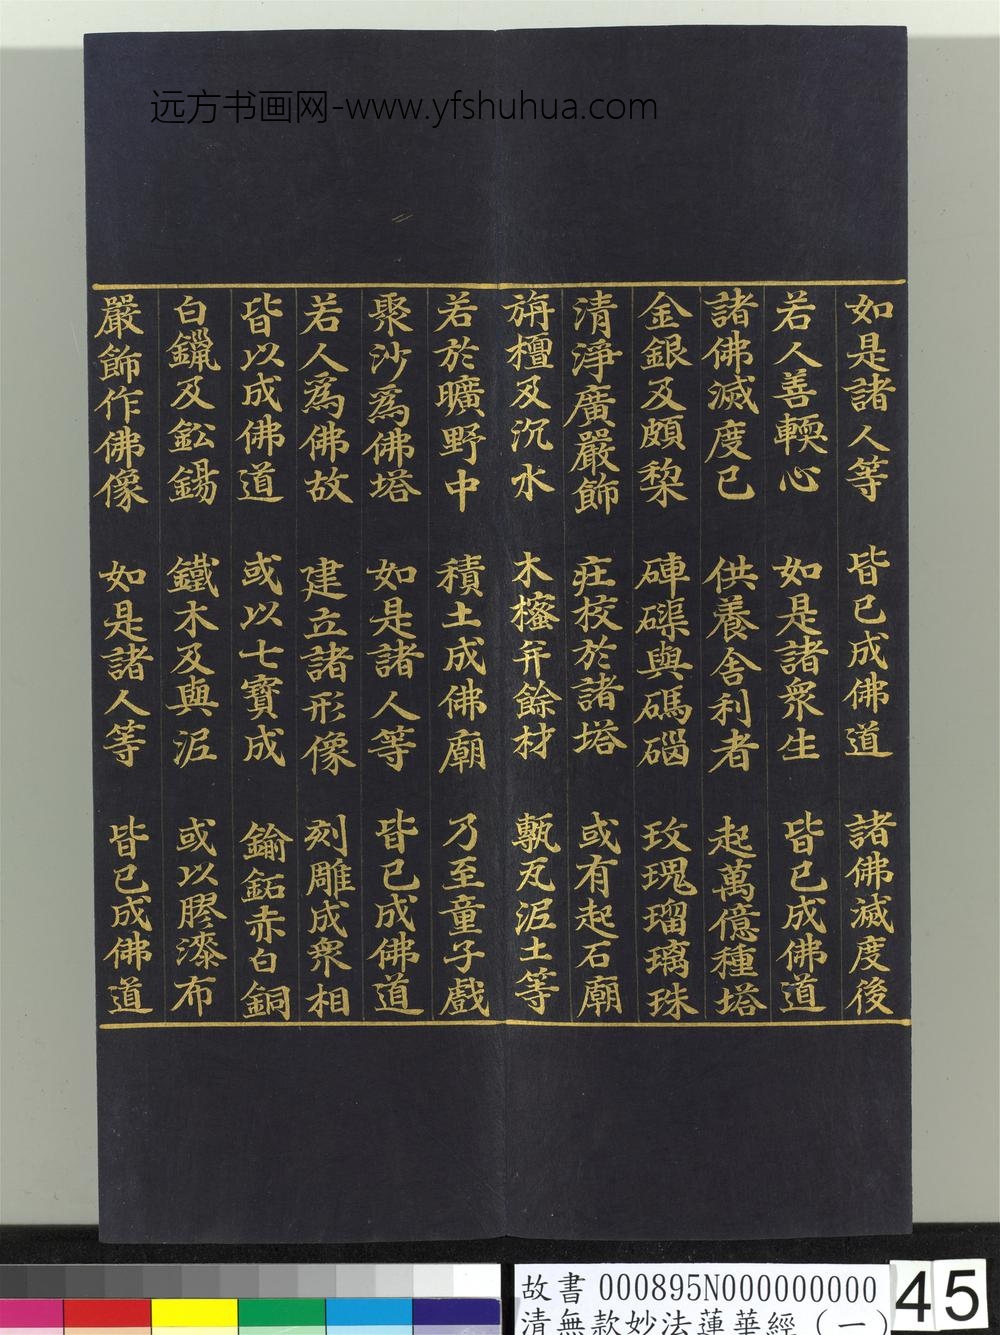 远方书画网-www.yfshuhua.com
如是諸人等 皆已成佛道 諸佛滅度後
若人善輭心 如是諸衆生 皆已成佛道
諸佛滅度已 供養舍利者 起萬億種塔
金銀及頗梨 硨磲與碼碯 玫瑰瑠璃珠
清淨廣嚴飾 莊校於諸塔 或有起石廟
栴檀及沉水 木樒并餘材 甎瓦泥土等
若於曠野中 積土成佛廟 乃至童子戲
聚沙爲佛塔 如是諸人等 皆已成佛道
若人爲佛故 建立諸形像 刻雕成衆相
皆以成佛道 或以七寶成 鍮鉐赤白銅
白鑞及鈆錫 鐵木及與泥 或以膠漆布
嚴飾作佛像 如是諸人等 皆已成佛道
故書 000895N000000000
清無款妙法蓮華經（一）
45